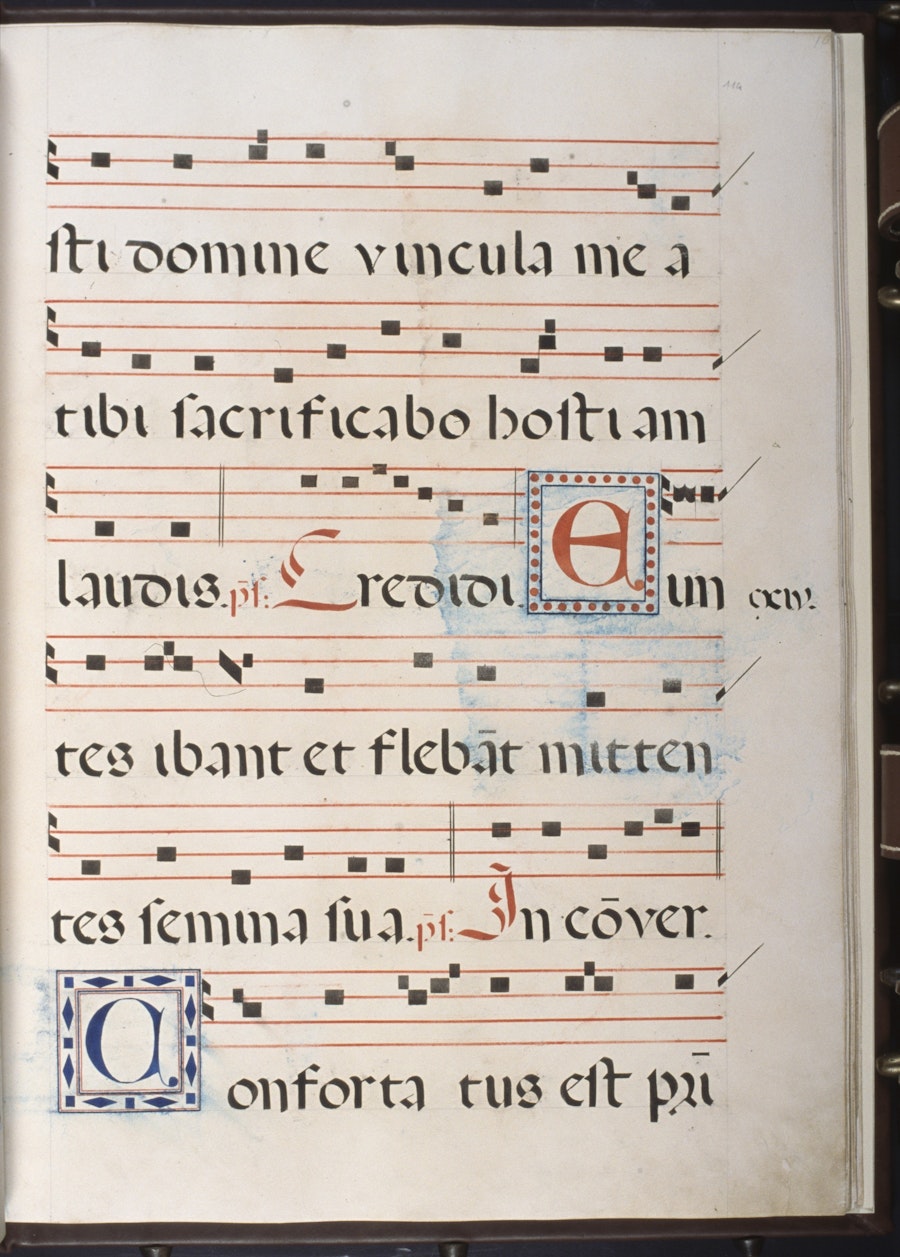 sti domine vincula me a
tibi sacrificabo hostiam
laudis. ps: Credidi. Eun
tes ibant et flebāt mitten
tes semina sua. ps: In cōver.
Confortatus est pri̅